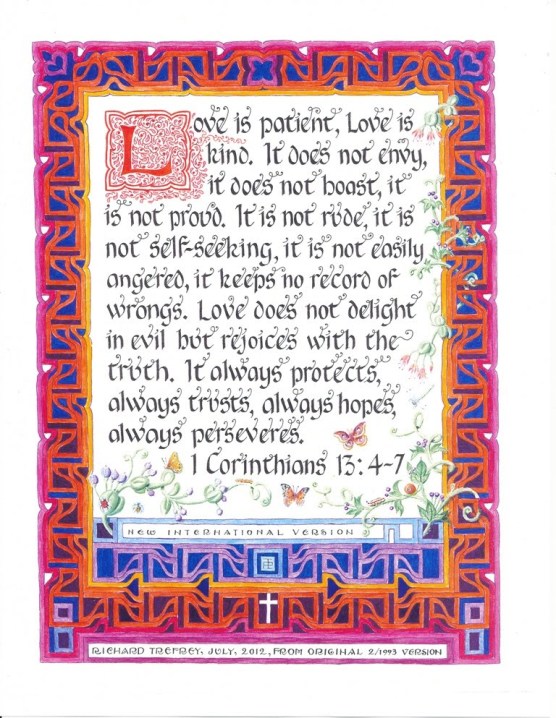 Love is patient, Love is
kind. It does not envy,
it does not boast, it
is not proud. It is not rude, it is
not self-seeking, it is not easily
angered, it keeps no record of
wrongs. Love does not delight
in evil but rejoices with the
truth. It always protects,
always trusts, always hopes,
always perseveres.
1 Corinthians 13:4-7
NEW INTERNATIONAL VERSION
RICHARD TREFREY, JULY, 2012, FROM ORIGINAL 2/1993 VERSION